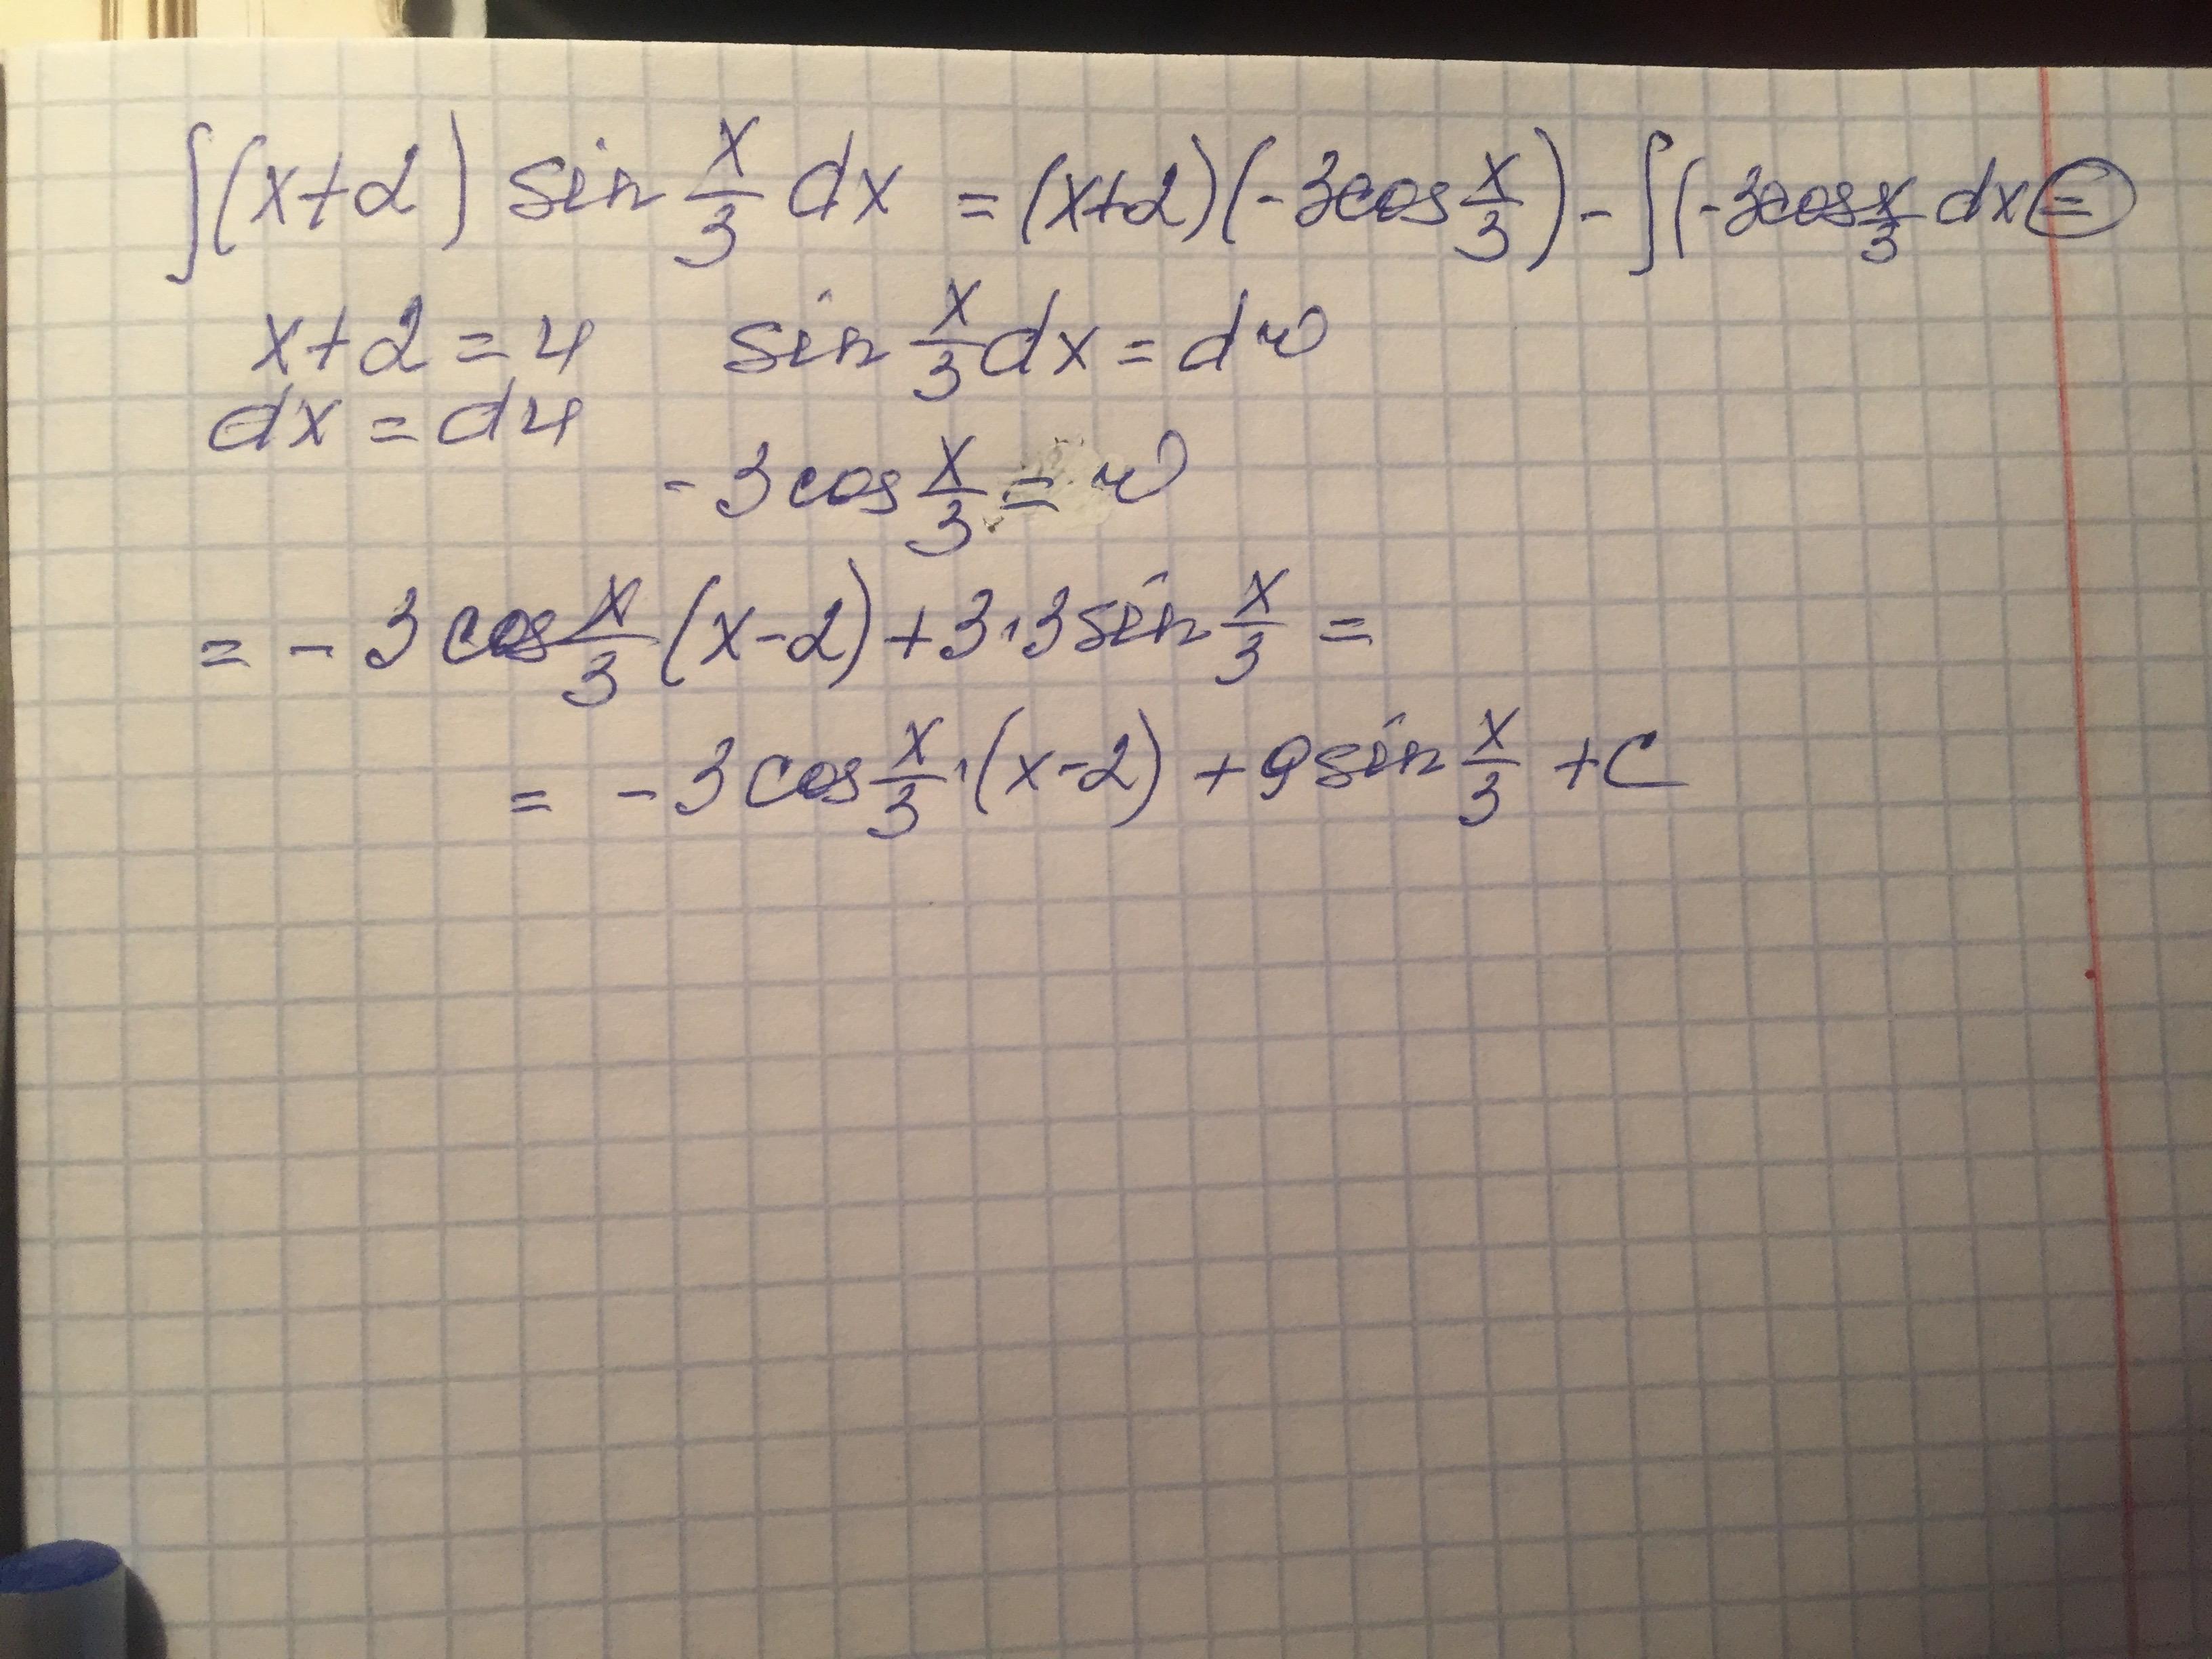 ∫(x+2) sin x/3 dx = (x+2)(-3cos x/3) - ∫(-3cos x/3 dx =
x+2=u sin x/3 dx = dv
dx = du
-3cos x/3 = v
= -3cos x/3 (x-2)+3·3sin x/3 =
= -3cos x/3 ·(x-2) +9sin x/3 +C